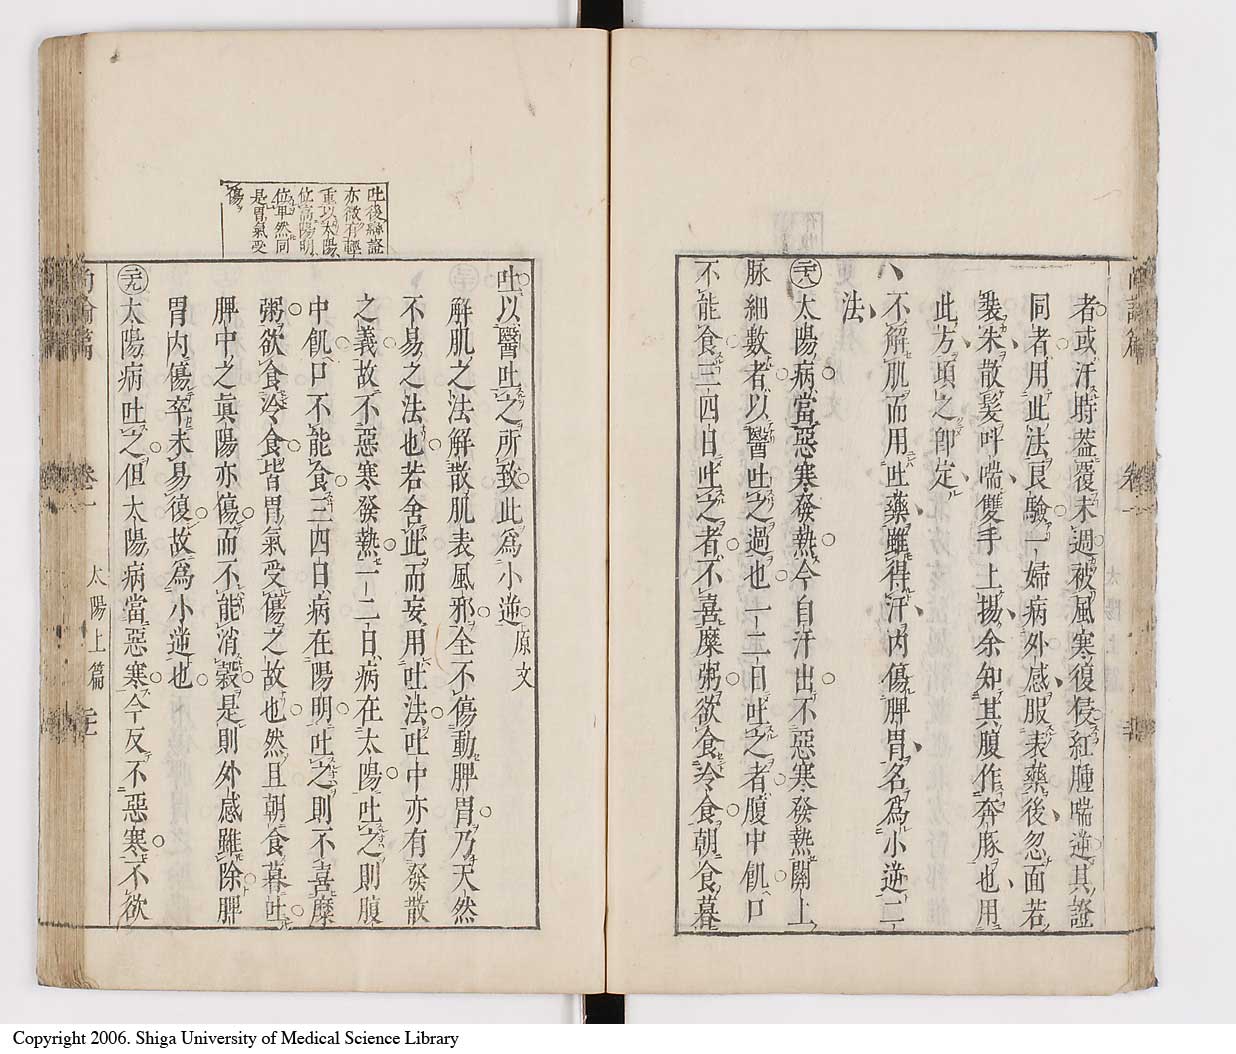 者或汗時葢覆未週被風寒復侵紅腫喘逆其證
同者用此法良驗一婦病外感服表藥後忽面若
裝朱散髮呼喘雙手上揚余知其腹作奔豚也用
此方頃之卽定
不解肌而用吐藥雖得汗內傷脾胃名爲小逆二
法
太陽病當惡寒發熱今自汗出不惡寒發熱關上
脉細數者以醫吐之過也一二日吐之者腹中飢口
不能食三四日吐之者不喜糜粥欲食冷食朝食暮
吐後緣證
亦微有輕
重以太陽
位高陽明
位卑然同
是胃氣受
傷
吐以醫吐之所致此爲小逆原文
解肌之法解散肌表風邪全不傷動脾胃乃天然
不易之法也若舍此而妄用吐法吐中亦有發散
之義故不惡寒發熱一二日病在太陽吐之則腹
中飢口不能食三四日病在陽明吐之則不喜糜
粥欲食冷食皆胃氣受傷之故也然且朝食暮吐
脾中之眞陽亦傷而不能消穀是則外感雖除脾
胃內傷卒未易復故爲小逆也
太陽病吐之但太陽病當惡寒今反不惡寒不欲
太陽上篇
Copyright 2006. Shiga University of Medical Science Library